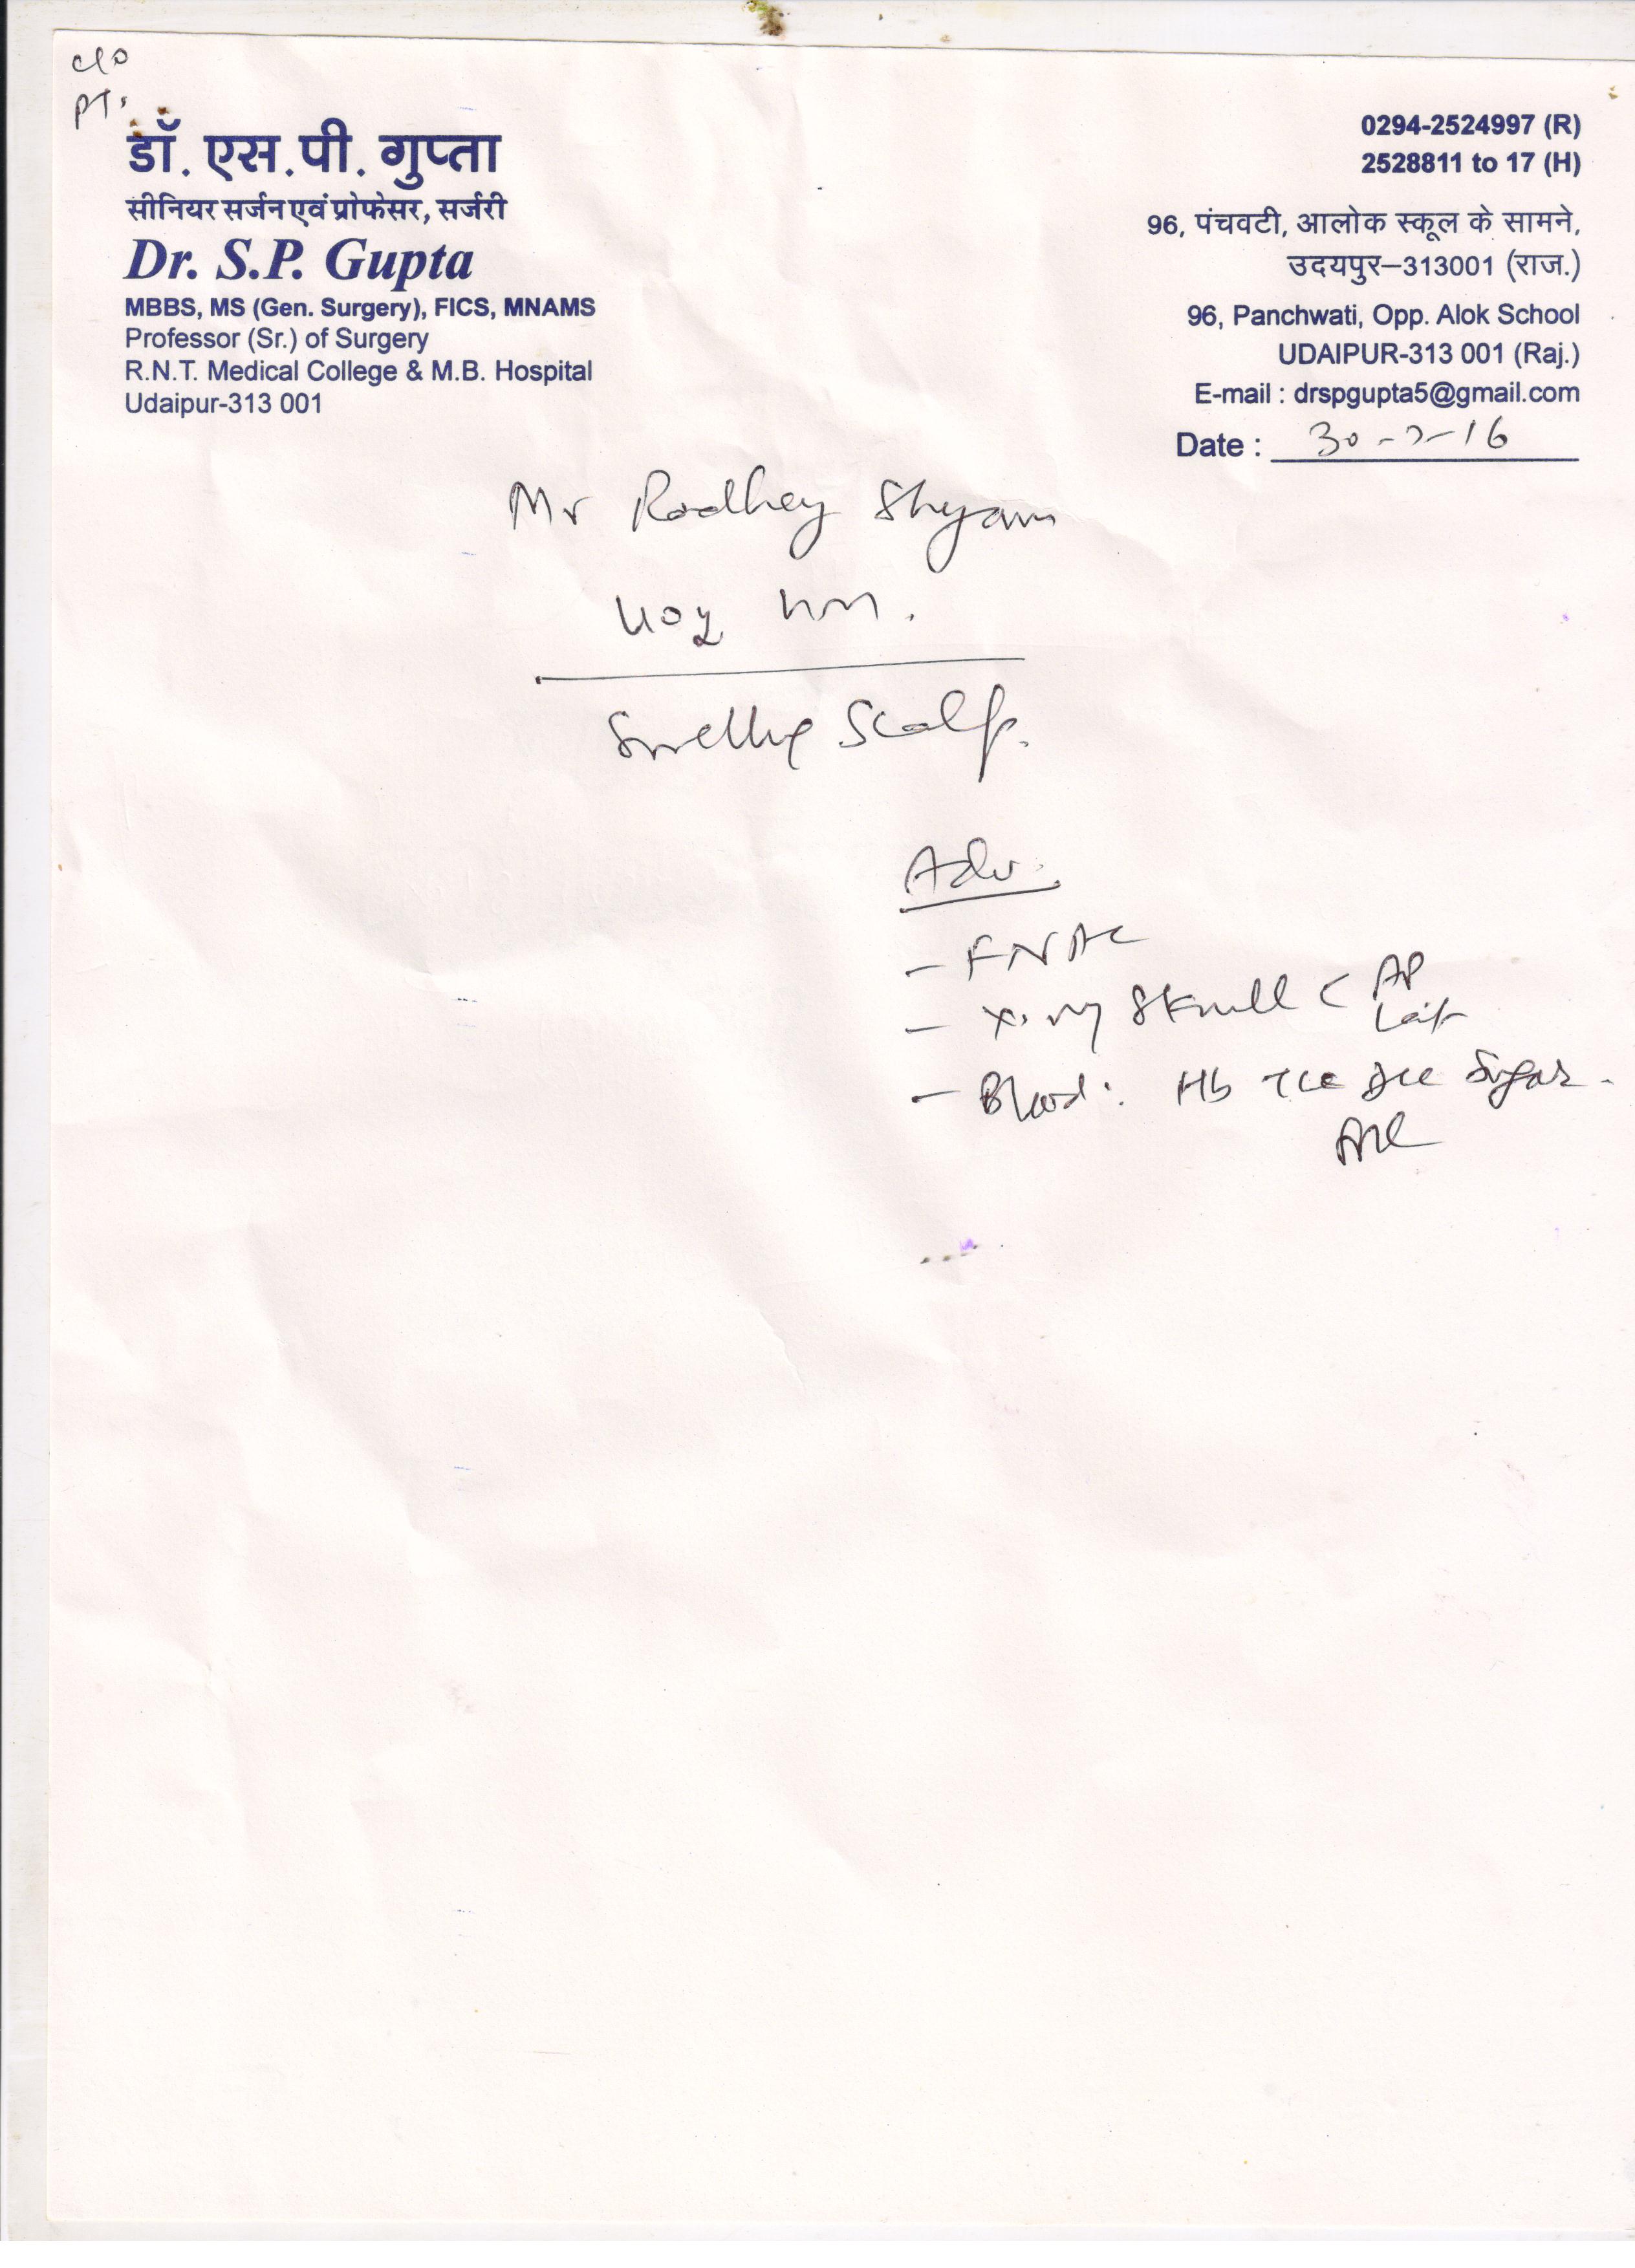 c/o
PT.
डॉ. एस.पी. गुप्ता
सीनियर सर्जन एवं प्रोफेसर, सर्जरी
Dr. S.P. Gupta
MBBS, MS (Gen. Surgery), FICS, MNAMS
Professor (Sr.) of Surgery
R.N.T. Medical College & M.B. Hospital
Udaipur-313 001
0294-2524997 (R)
2528811 to 17 (H)
96, पंचवटी, आलोक स्कूल के सामने,
उदयपुर–313001 (राज.)
96, Panchwati, Opp. Alok School
UDAIPUR-313 001 (Raj.)
E-mail : drspgupta5@gmail.com
Date :
Mr Radhey Shyam
40y
Swelling Scalp.
Adv.
- FNAC
- X-ray Skull < AP
Lat
- Blood: Hb TLC DLC Sugar.